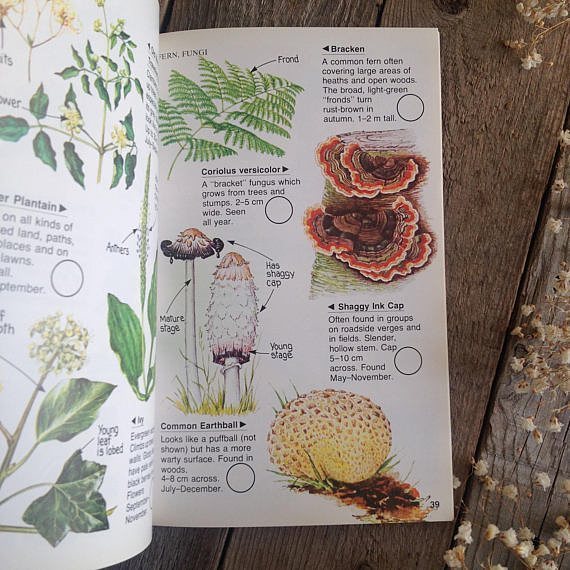 its
ower
er Plantain
on all kinds of
ed land, paths,
places and on
lawns.
all.
eptember.
Anthers
of
oth
Young
leaf
is lobed
Ivy
Evergreen
Climbs
black
Flowers
September
November
FERN, FUNGI
Frond
Bracken
A common fern often
covering large areas of
heaths and open woods.
The broad, light-green
"fronds" turn
rust-brown in
autumn. 1–2 m tall.
Coriolus versicolor
A "bracket" fungus which
grows from trees and
stumps. 2–5 cm
wide. Seen
all year.
Has
shaggy
cap
Mature
stage
Young
stage
Shaggy Ink Cap
Often found in groups
on roadside verges and
in fields. Slender,
hollow stem. Cap
5–10 cm
across. Found
May–November.
Common Earthball
Looks like a puffball (not
shown) but has a more
warty surface. Found in
woods.
4–8 cm across.
July–December.
39